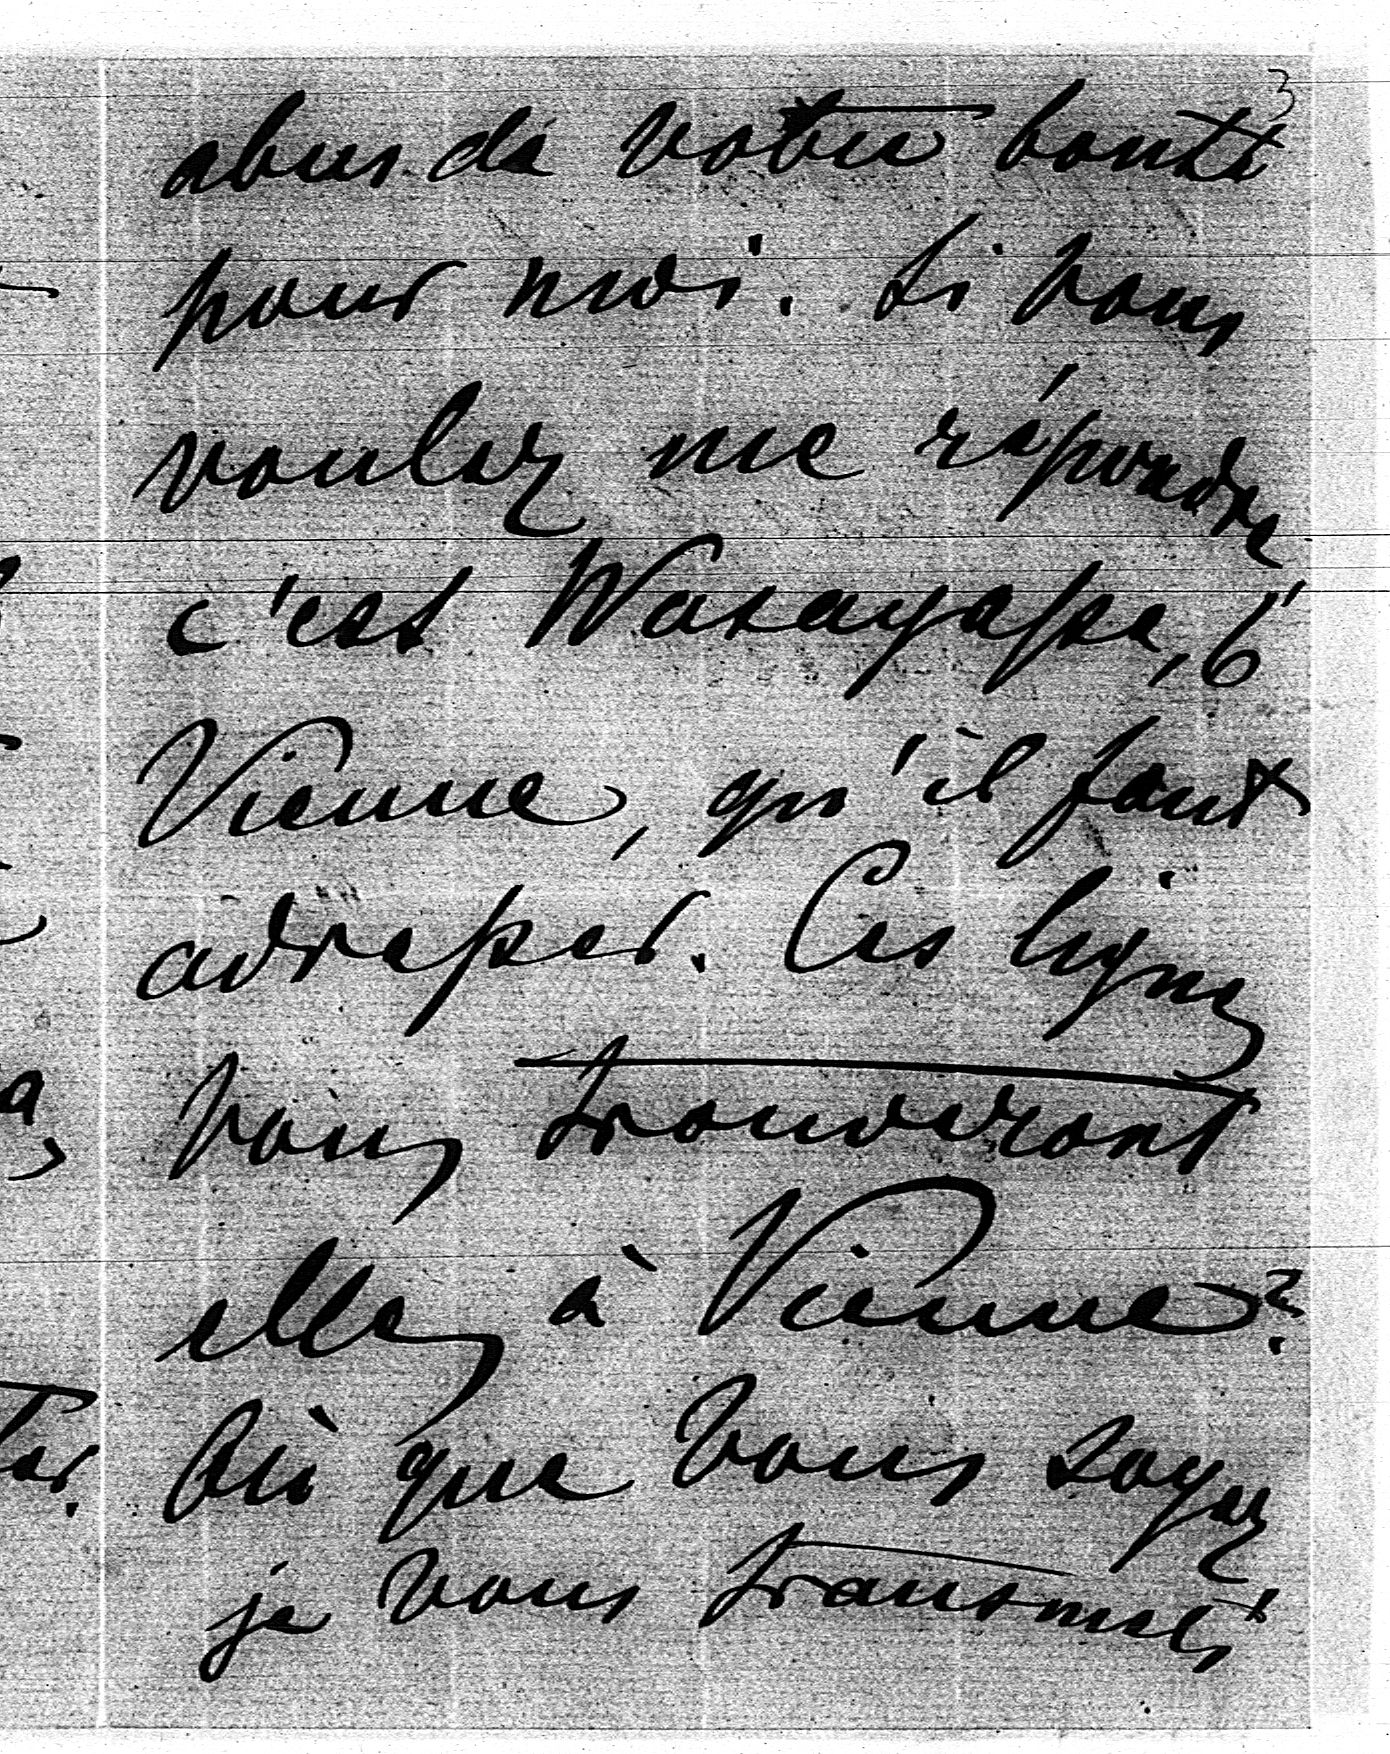 3
abus de votre bonté
pour moi. Si vous
voulez me répondre
c'est Wasagasse, 6
Vienne, qu'il faut
adresser. Ces lignes
vous trouveront
elles à Vienne?
Où que vous soyez
je vous transmets